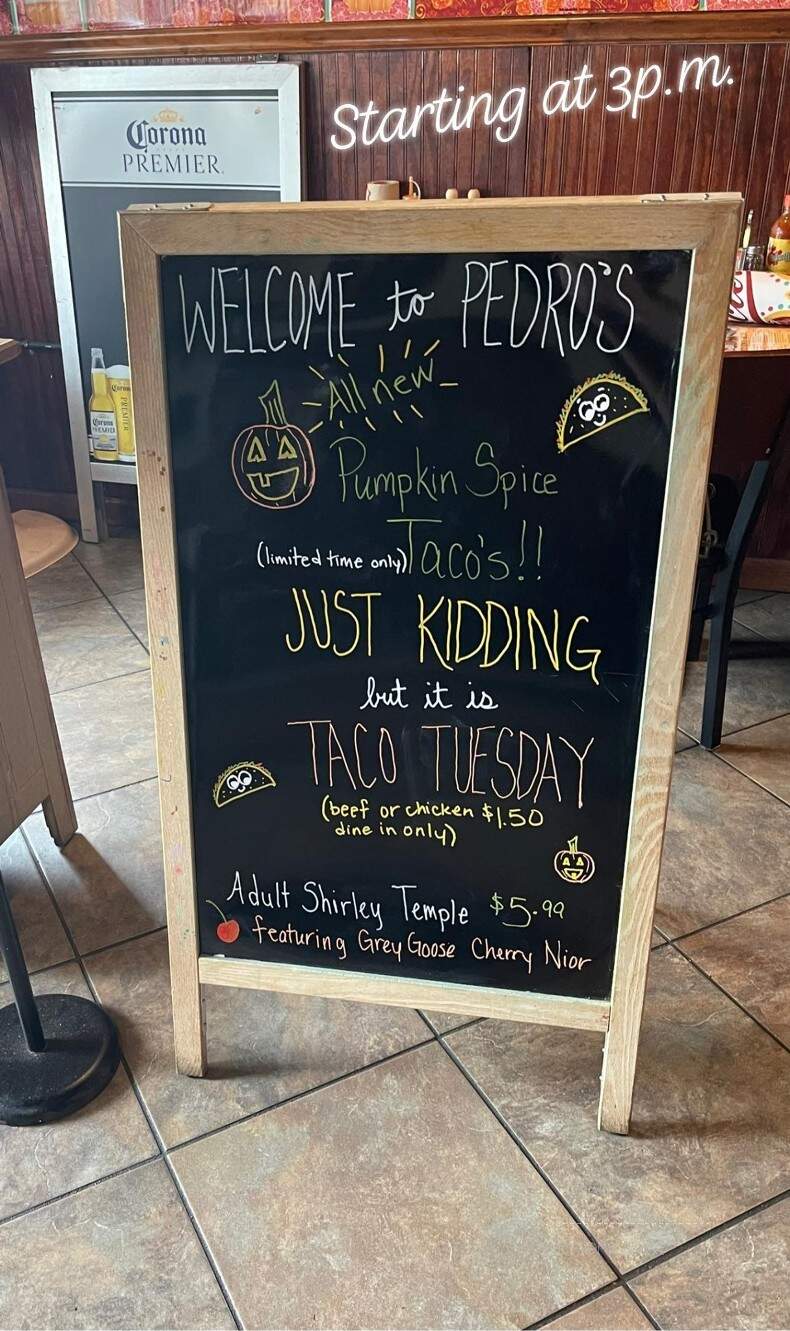 Starting at 3p.m.
Corona
PREMIER.
WELCOME to PEDRO'S
All new
Pumpkin Spice
(limited time only) Taco's!!
JUST KIDDING
but it is
TACO TUESDAY
(beef or chicken $1.50
dine in only)
Adult Shirley Temple $5.99
featuring Grey Goose Cherry Nior